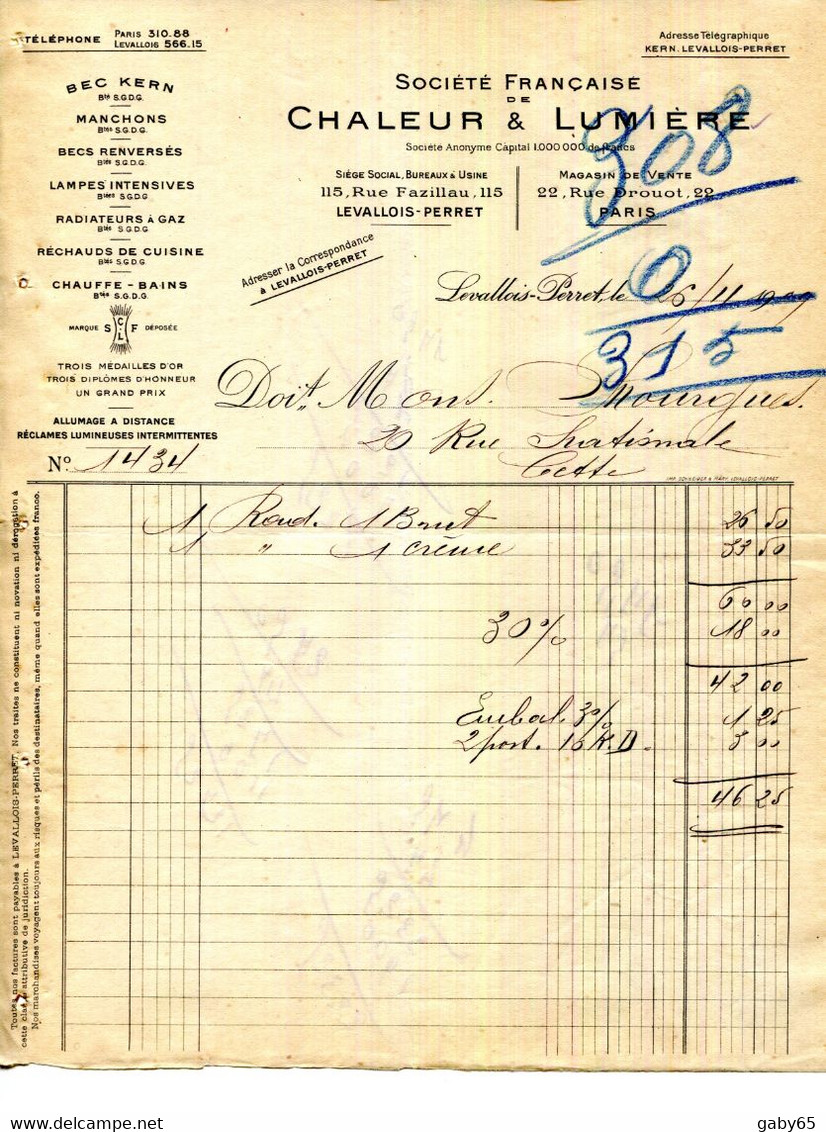 TÉLÉPHONE PARIS 310.88
LEVALLOIS 566.15
Adresse Télégraphique
KERN. LEVALLOIS-PERRET
BEC KERN
Bté S.G.D.G.
MANCHONS
Btés S.G.D.G.
BECS RENVERSÉS
Btés S.G.D.G.
LAMPES INTENSIVES
Btées S.G.D.G
RADIATEURS À GAZ
Btés S.G.D.G.
RÉCHAUDS DE CUISINE
Btés S.G.D.G.
CHAUFFE-BAINS
Btés S.G.D.G.
MARQUE S C L F DÉPOSÉE
TROIS MÉDAILLES D'OR
TROIS DIPLÔMES D'HONNEUR
UN GRAND PRIX
ALLUMAGE A DISTANCE
RÉCLAMES LUMINEUSES INTERMITTENTES
SOCIÉTÉ FRANÇAISE
DE
CHALEUR & LUMIÈRE
Société Anonyme Capital 1.000 000 de francs
SIÈGE SOCIAL, BUREAUX & USINE
115, Rue Fazillau, 115
LEVALLOIS-PERRET
MAGASIN DE VENTE
22, Rue Drouot, 22
PARIS
308
0
315
Adresser la Correspondance
à LEVALLOIS-PERRET
Levallois-Perret, le 26/11 1909
Doit Mons. Mourgues.
20 Rue Nationale
Cette
No 1434
1 Rad. 1 Brut 26 50
1 " 1 crème 33 50
60 00
30% 18 00
42 00
Embal. 3% 1 25
2 post. 10 K. D. 3 00
46 25
Toutes nos factures sont payables à LEVALLOIS-PERRET. Nos traites ne constituent ni novation ni dérogation à
cette clause attributive de juridiction.
Nos marchandises voyagent toujours aux risques et périls des destinataires, même quand elles sont expédiées franco.
gaby65